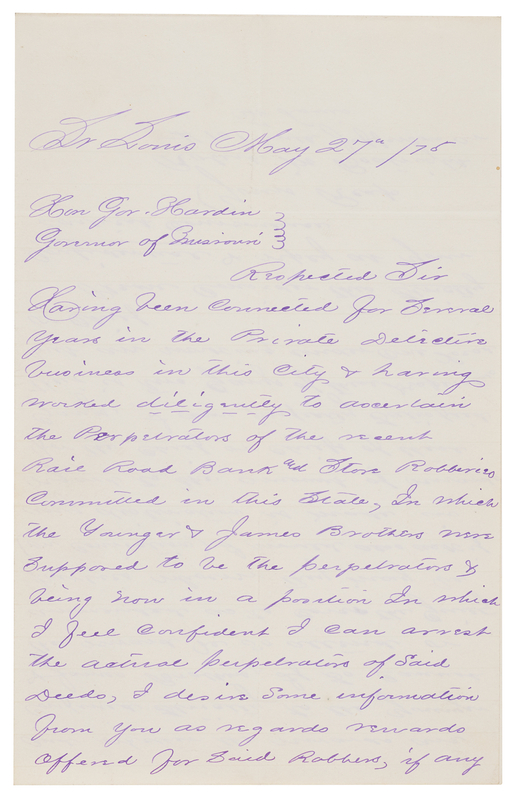 St Louis May 27th /75
Hon Gov. Hardin
Governor of Missouri
Respected Sir
Having been Connected for Several
Years in the Private Detective
business in this City & having
worked diligently to ascertain
the Perpetrators of the recent
Rail Road Bank and Store Robberies
Committed in this State, In which
the Younger & James Brothers were
Supposed to be the perpetrators &
being now in a position In which
I feel Confident I can arrest
the actual perpetrators of Said
Deeds, I desire Some information
from You as regards rewards
Offered for Said Robbers, if any